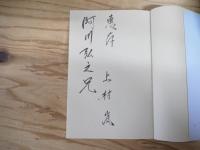 恵存
阿川弘之兄
上村岚